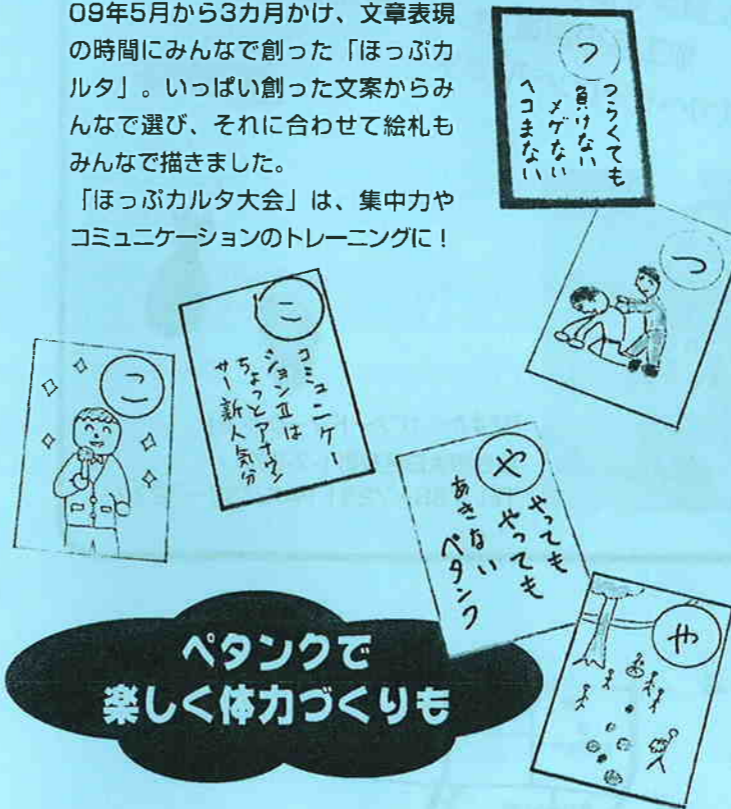 09年5月から3カ月かけ、文章表現
の時間にみんなで創った「ほっぷカ
ルタ」。いっぱい創った文案からみ
んなで選び、それに合わせて絵札も
みんなで描きました。
「ほっぷカルタ大会」は、集中力や
コミュニケーションのトレーニングに!
つ
つらくても
負けない
メゲない
ヘコまない
つ
こ
コミュニケー
ションⅡは
ちょっとアナウン
サー新人気分
こ
や
やっても
やっても
あきない
ペタンク
や
ペタンクで
楽しく体力づくりも